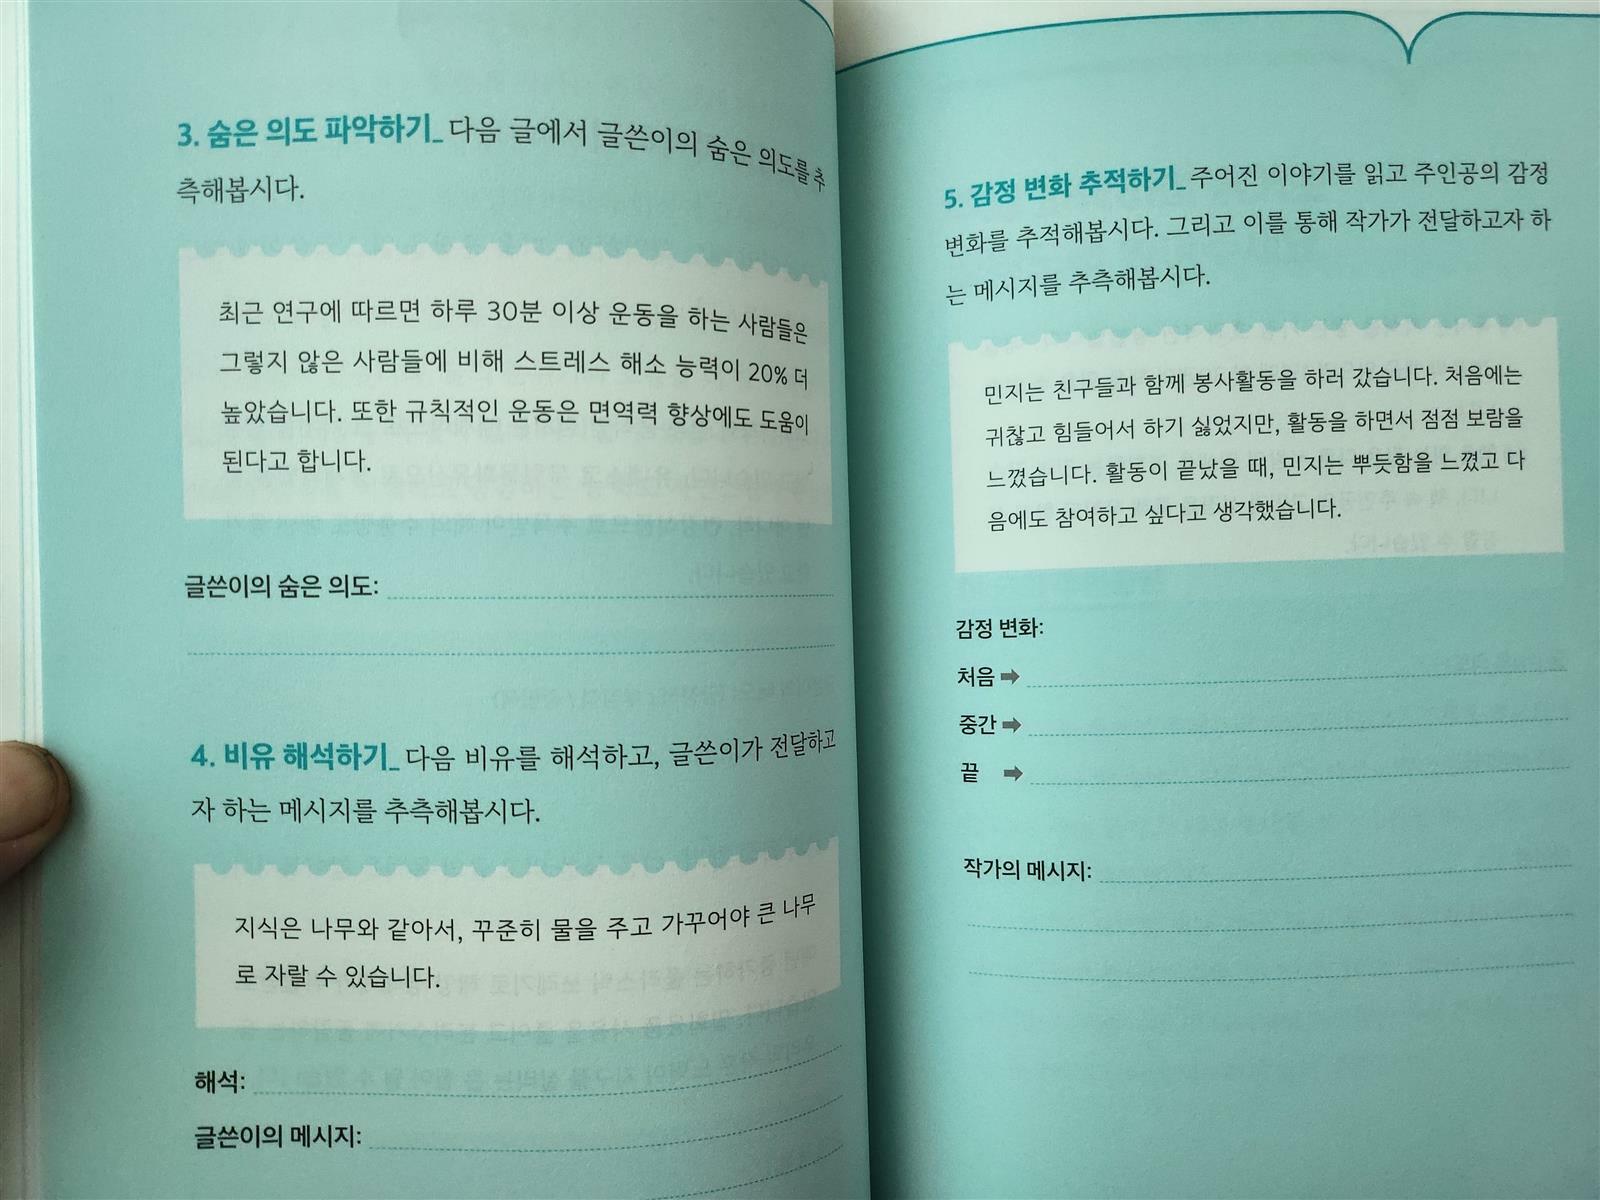 3. 숨은 의도 파악하기_ 다음 글에서 글쓴이의 숨은 의도를 추
측해봅시다.
최근 연구에 따르면 하루 30분 이상 운동을 하는 사람들은
그렇지 않은 사람들에 비해 스트레스 해소 능력이 20% 더
높았습니다. 또한 규칙적인 운동은 면역력 향상에도 도움이
된다고 합니다.
글쓴이의 숨은 의도:
4. 비유 해석하기_ 다음 비유를 해석하고, 글쓴이가 전달하고
자 하는 메시지를 추측해봅시다.
지식은 나무와 같아서, 꾸준히 물을 주고 가꾸어야 큰 나무
로 자랄 수 있습니다.
해석:
글쓴이의 메시지:
5. 감정 변화 추적하기_ 주어진 이야기를 읽고 주인공의 감정
변화를 추적해봅시다. 그리고 이를 통해 작가가 전달하고자 하
는 메시지를 추측해봅시다.
민지는 친구들과 함께 봉사활동을 하러 갔습니다. 처음에는
귀찮고 힘들어서 하기 싫었지만, 활동을 하면서 점점 보람을
느꼈습니다. 활동이 끝났을 때, 민지는 뿌듯함을 느꼈고 다
음에도 참여하고 싶다고 생각했습니다.
감정 변화:
처음 ➡
중간 ➡
끝 ➡
작가의 메시지: